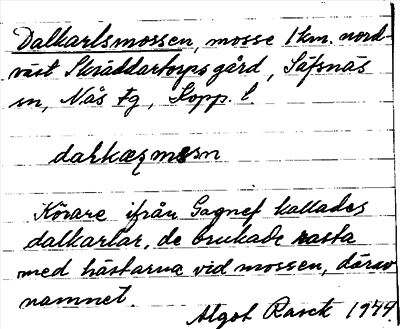 Dalkarlsmossen, mosse 1 km. nord-
väst Skräddartorps gård, Säfsnäs
sn, Nås tg, Kopp. l.
dalkaꞬmɷsn
Körare ifrån Gagnef kallades
dalkarlar, de brukade rasta
med hästarna vid mossen, därav
namnet.
Algot Rasck 1944.